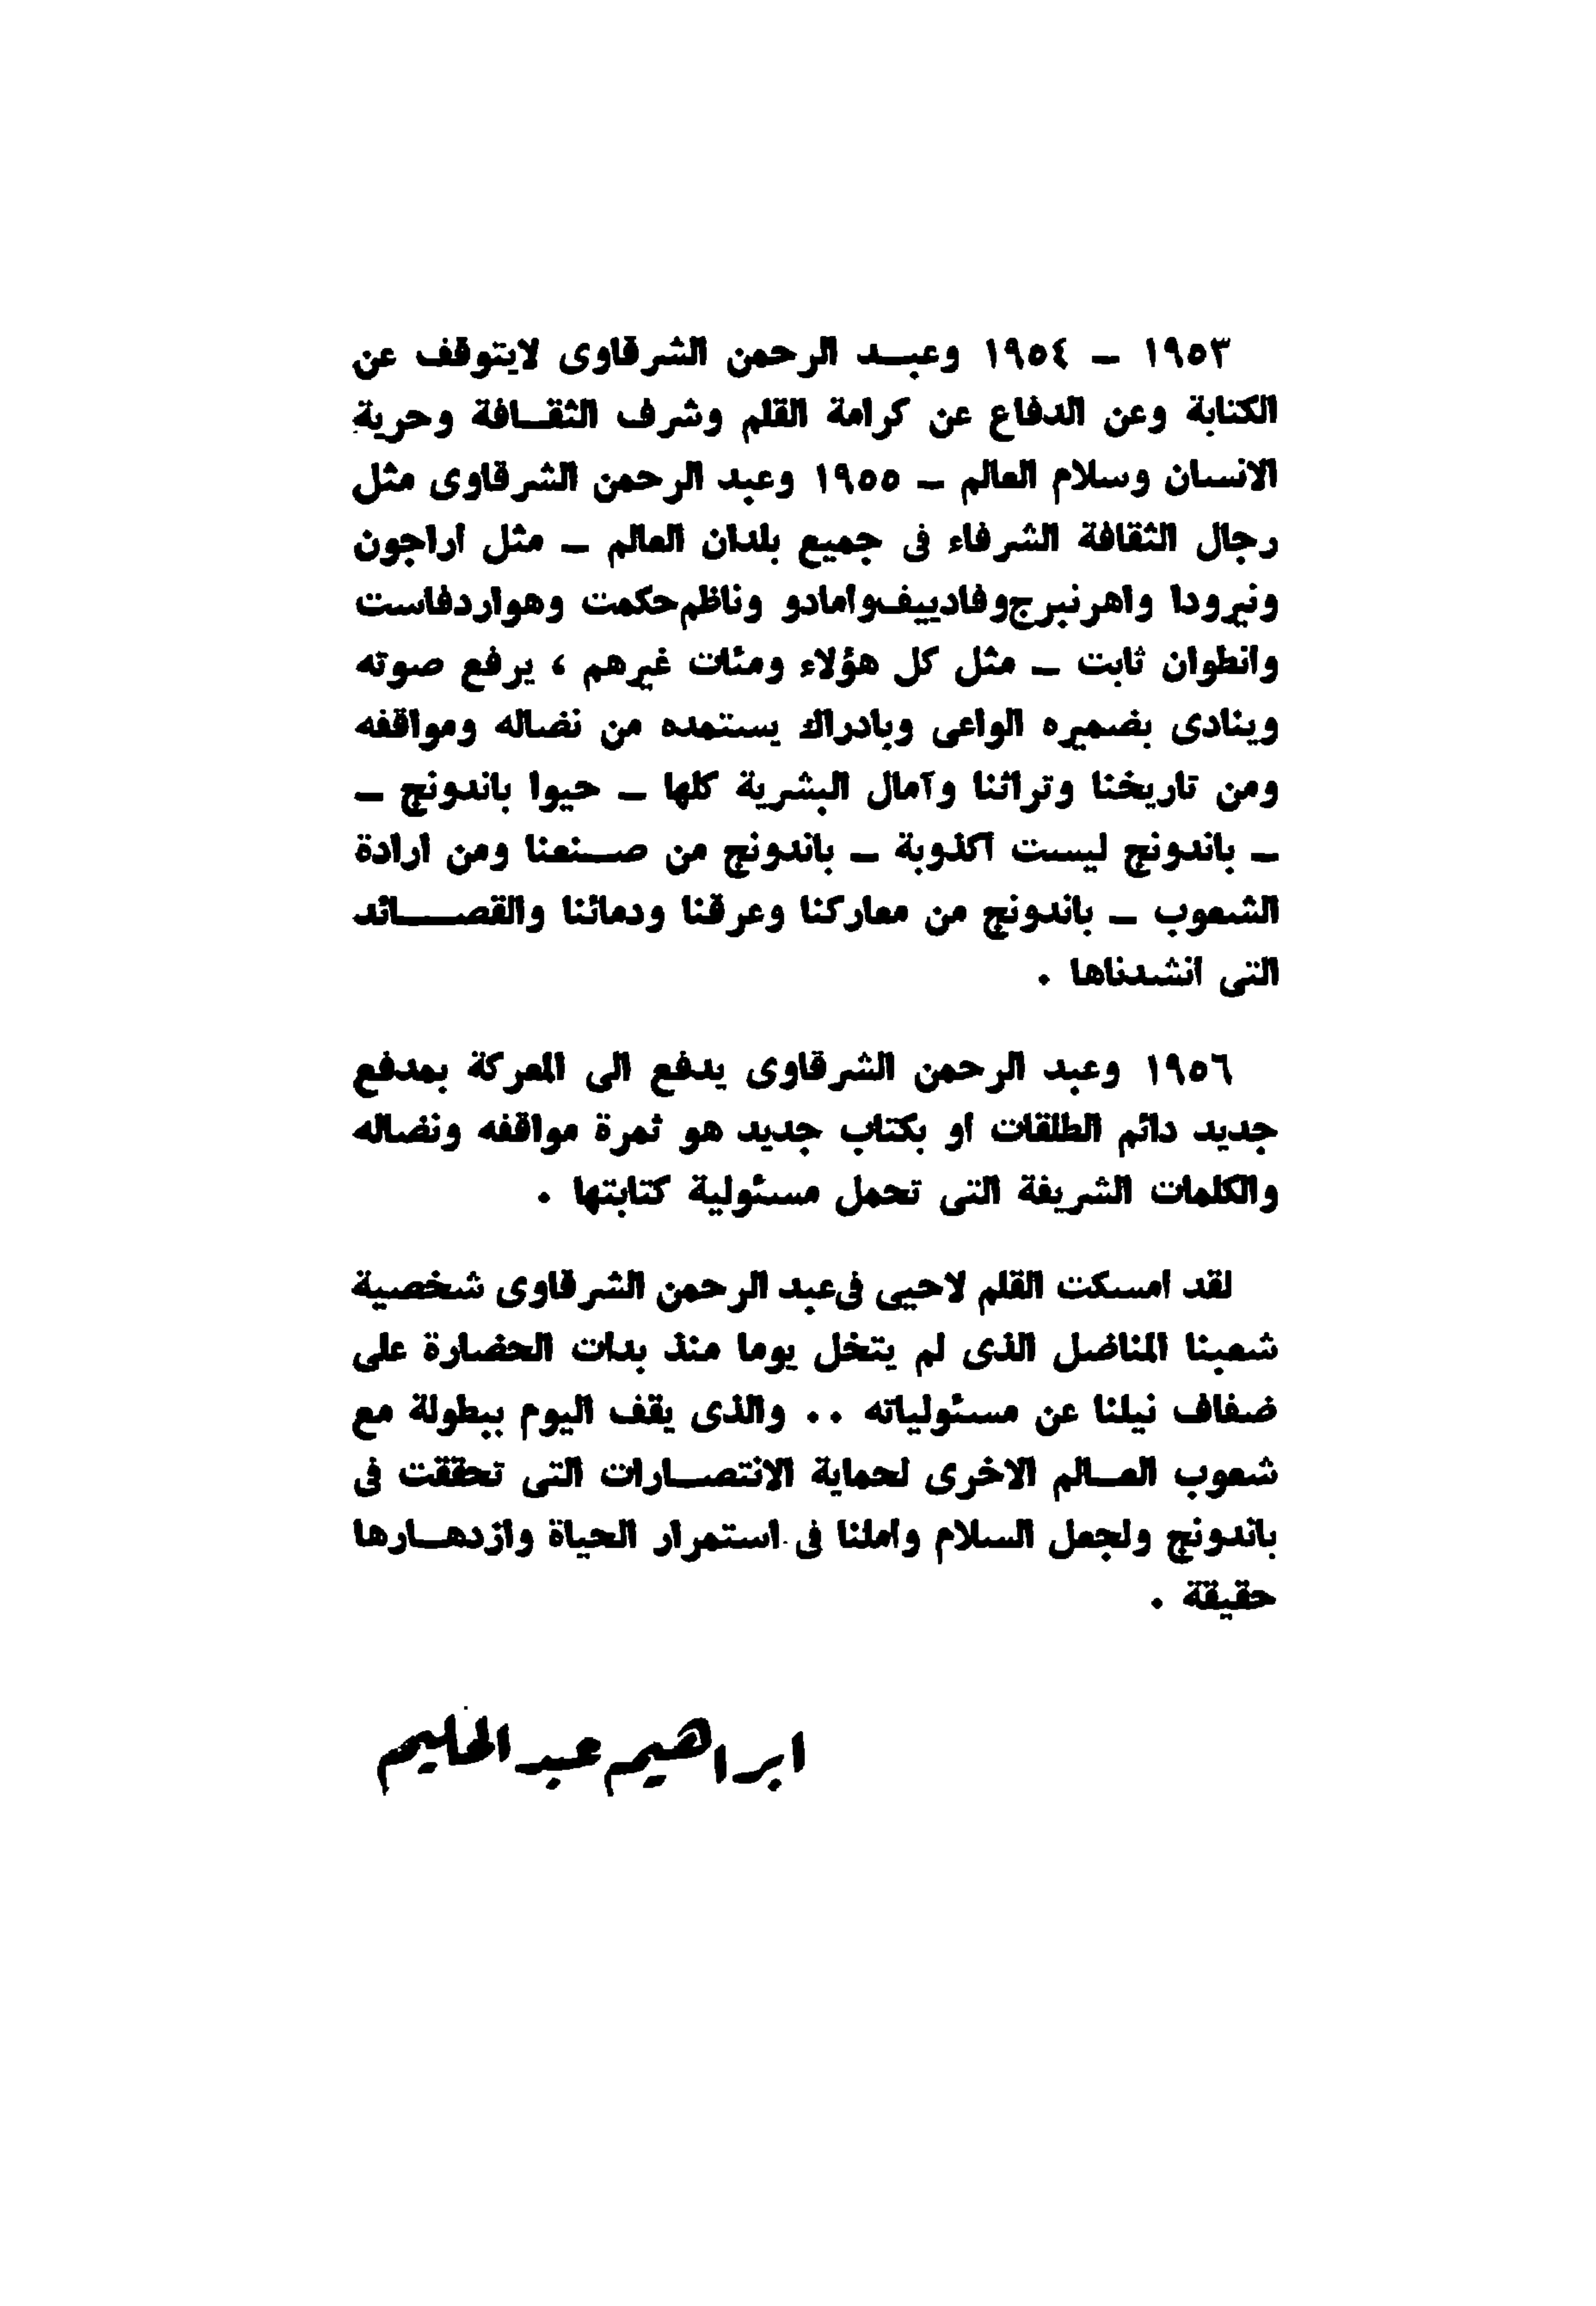 ١٩٥٣ ــ ١٩٥٤ وعبـد الرحمن الشرقاوى لايتوقف عن
الكتابة وعن الدفاع عن كرامة القلم وشرف الثقـافة وحرية
الانسان وسلام العالم ــ ١٩٥٥ وعبد الرحمن الشرقاوى مثل
رجال الثقافة الشرفاء فى جميع بلدان العالم ــ مثل أراجون
ونيرودا واهرنبرج وفادييف وأمادو وناظم حكمت وهواردفاست
وانطوان ثابت ــ مثل كل هؤلاء ومئات غيرهم ، يرفع صوته
وينادى بضميره الواعى وبادراك يستمده من نضاله ومواقفه
ومن تاريخنا وتراثنا وآمال البشرية كلها ــ حيوا باندونج ــ
ــ باندونج ليست أكذوبة ــ باندونج من صـنعنا ومن ارادة
الشعوب ــ باندونج من معاركنا وعرقنا ودمائنا والقصـــائد
التى أنشدناها .
١٩٥٦ وعبد الرحمن الشرقاوى يدفع الى المعركة بمدفع
جديد دائم الطلقات أو بكتاب جديد هو ثمرة مواقفه ونضاله
والكلمات الشريفة التى تحمل مسئولية كتابتها .
لقد أمسكت القلم لاحيى فى عبد الرحمن الشرقاوى شخصية
شعبنا المناضل الذى لم يتخل يوما منذ بدأت الحضارة على
ضفاف نيلنا عن مسئولياته .. والذى يقف اليوم ببطولة مع
شعوب العـالم الاخرى لحماية الانتصـارات التى تحققت فى
باندونج ولجعل السلام وأملنا فى استمرار الحياة وازدهـارها
حقيقة .
ابراهيم عبد الحليم